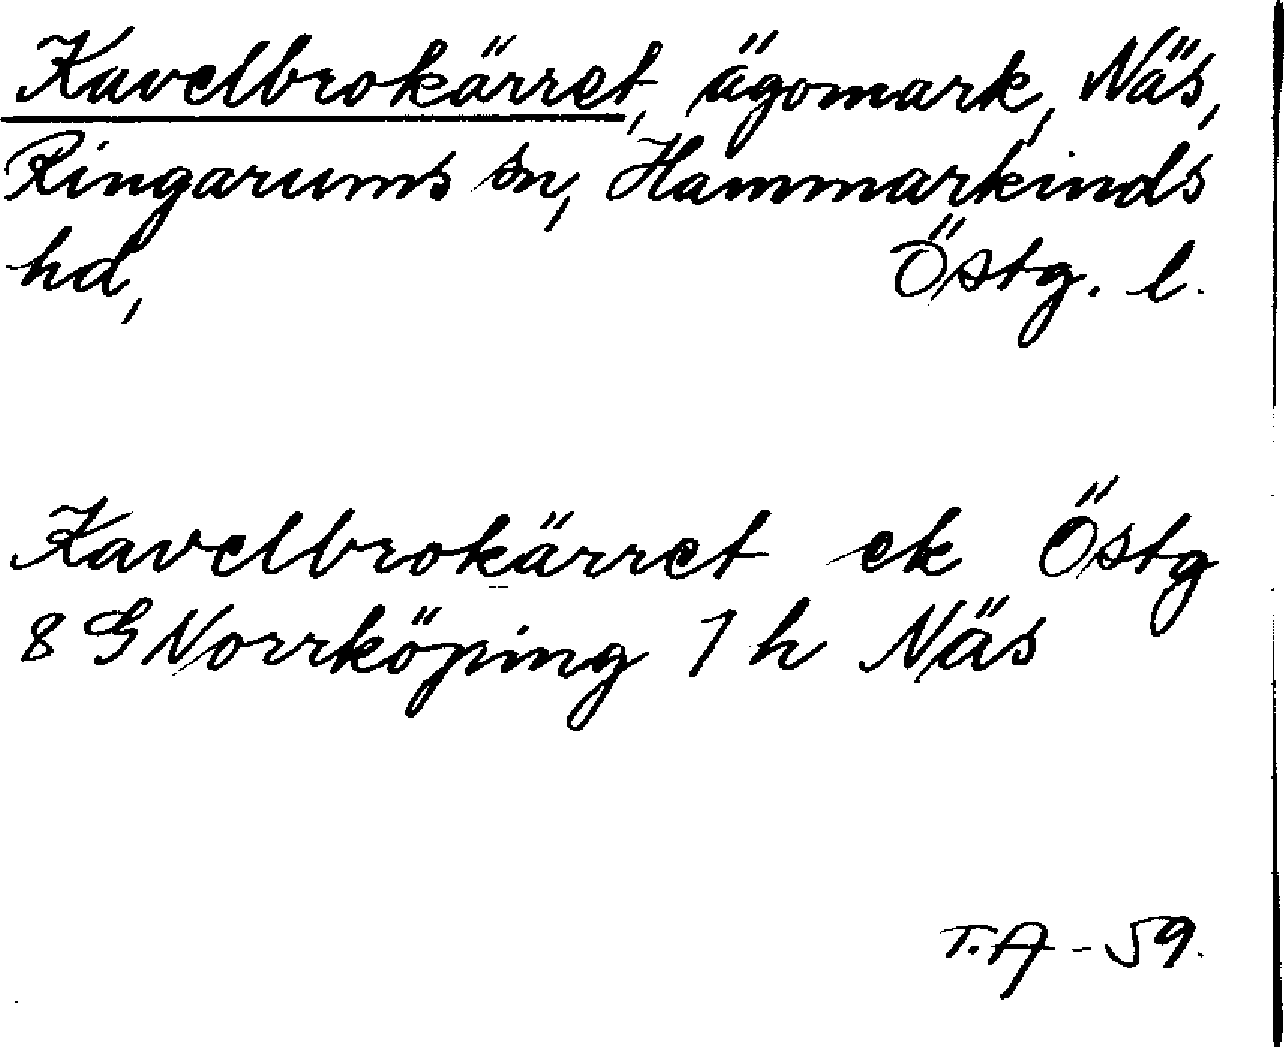 Kavelbrokärret, ägomark, Näs,
Ringarums sn, Hammarkinds
hd, Östg. l.
Kavelbrokärret ek Östg
8 G Norrköping 1 h Näs
T.A - 59.